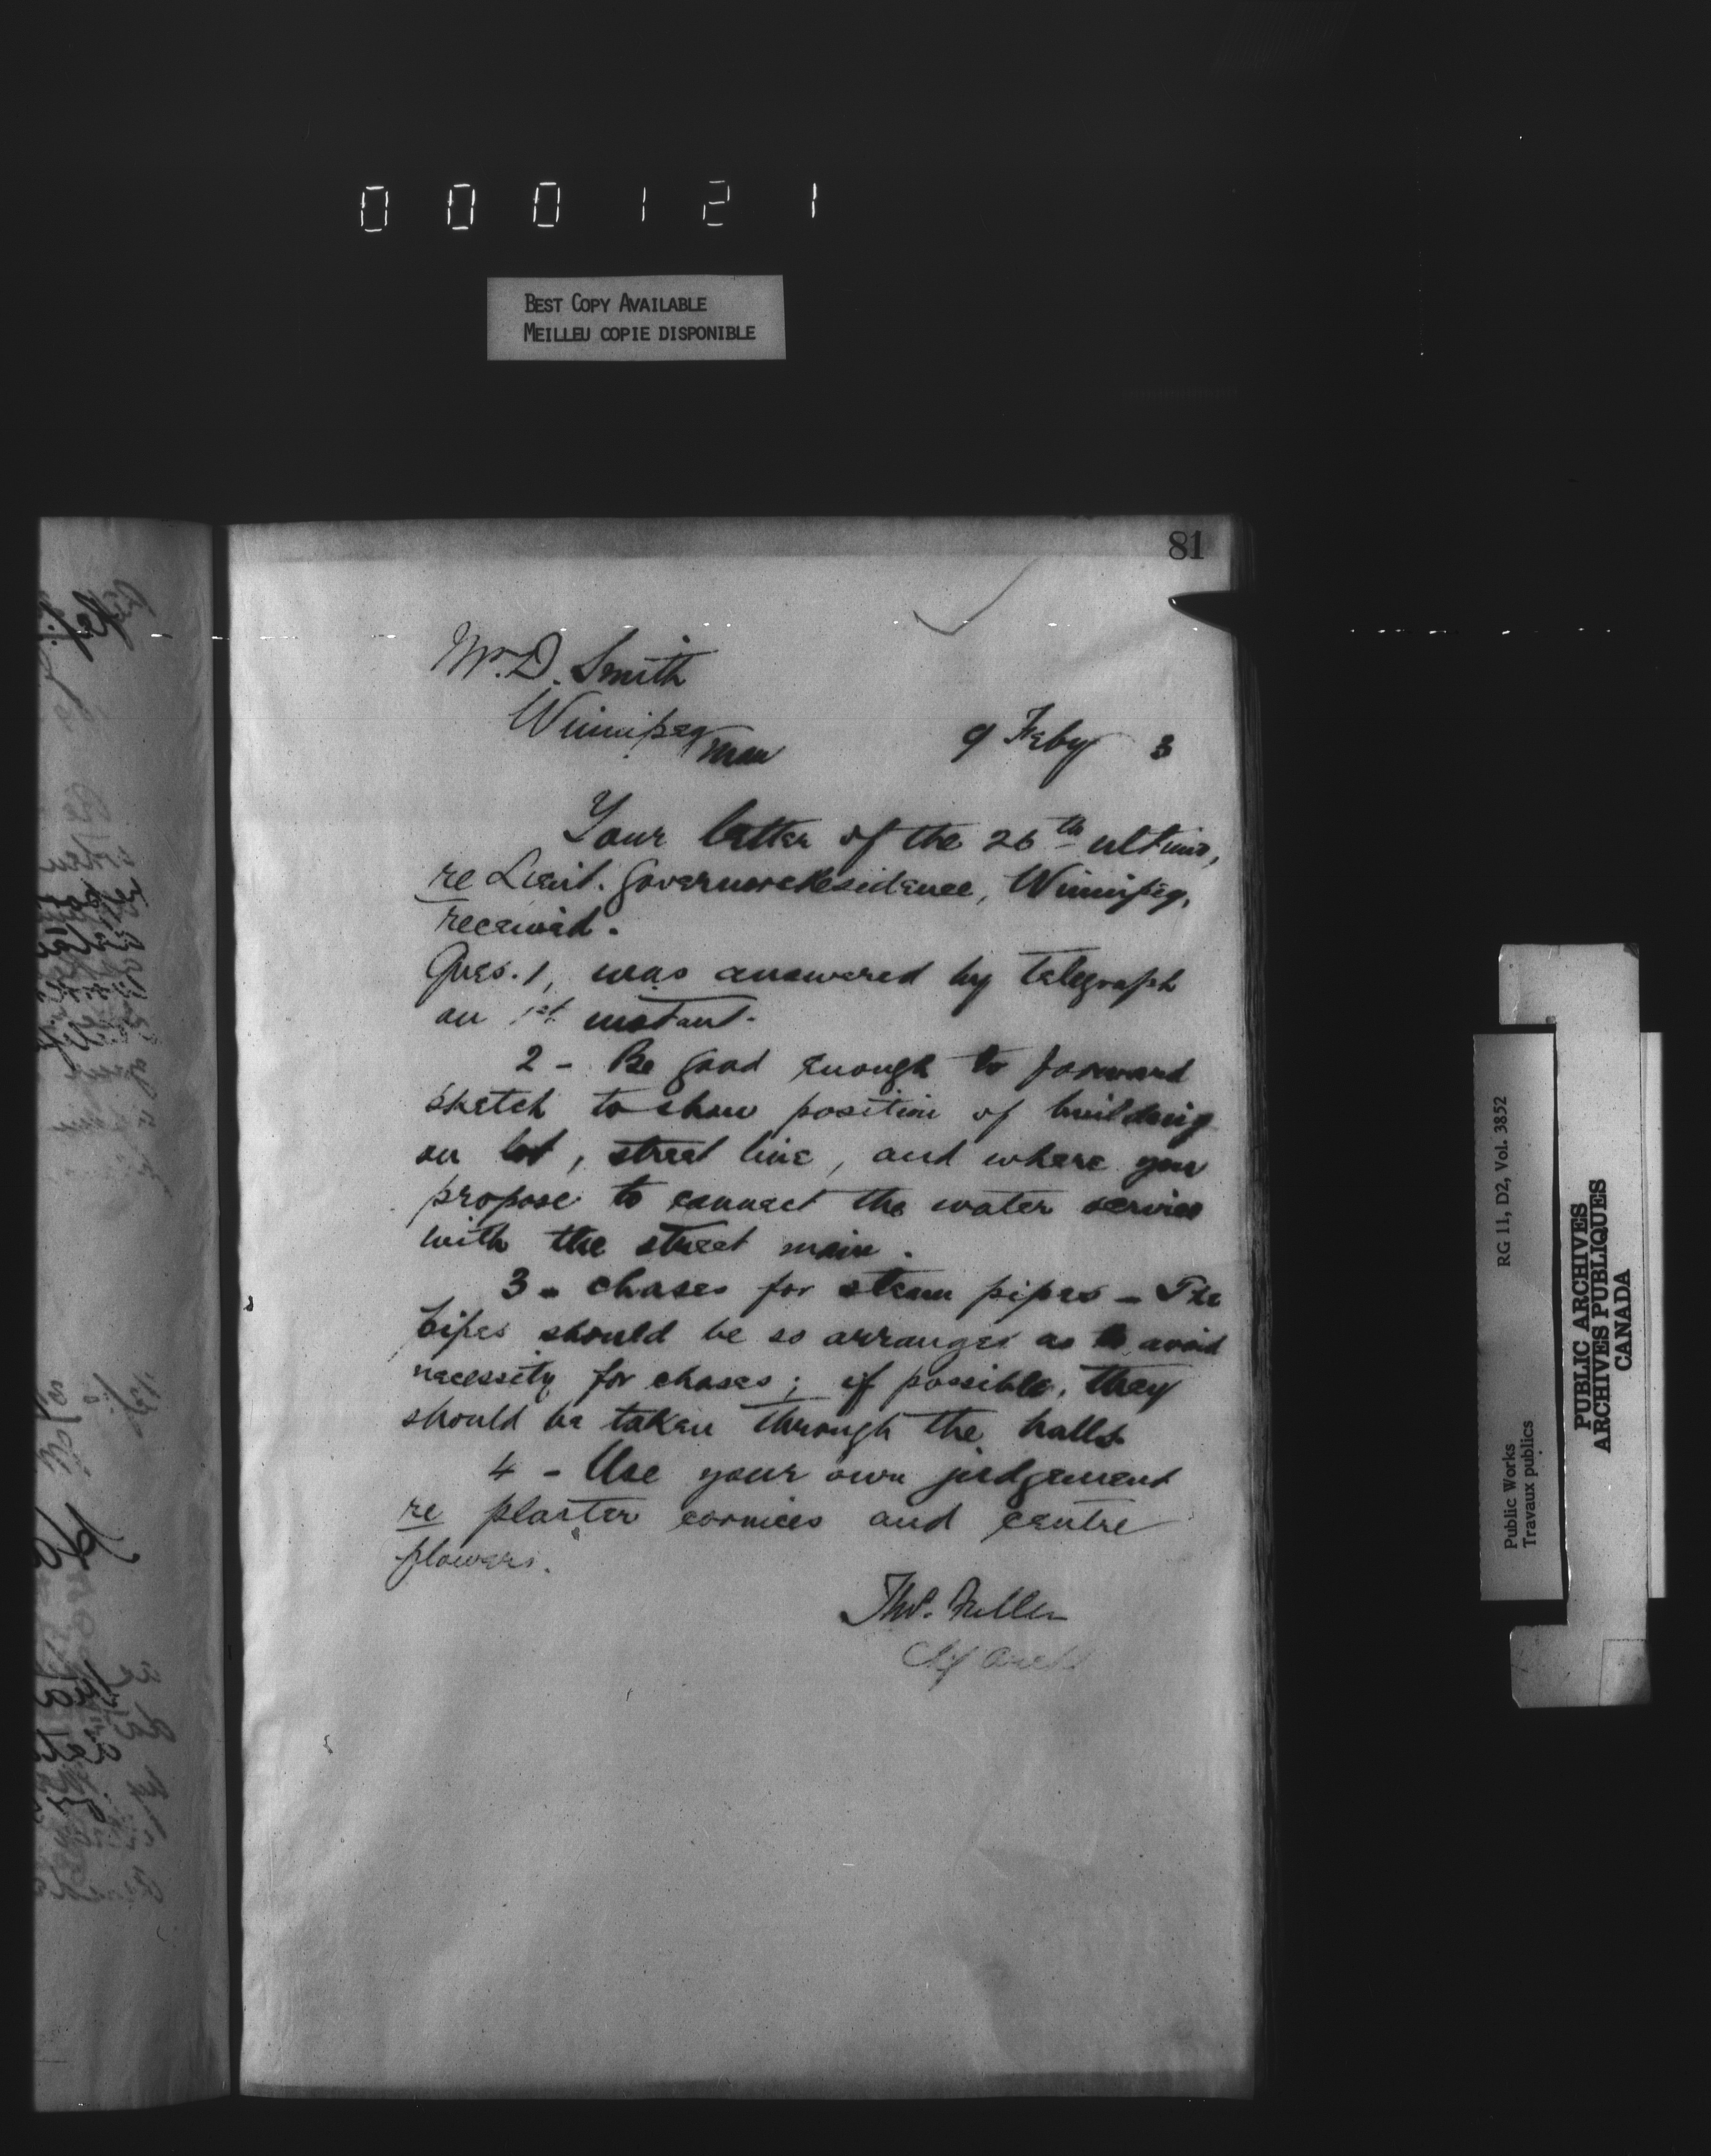 000121
BEST COPY AVAILABLE
MEILLEU COPIE DISPONIBLE
81
Mr. D. Smith
Winnipeg
Man
9 Feby 3
Your letter of the 26th ultimo,
re Lieut. Governors Residence, Winnipeg,
received.
Ques. 1, was answered by telegraph
on 1st instant.
2 - Be good enough to forward
sketch to show position of building
on lot, street line, and where you
propose to connect the water service
with the street main.
3 - Chases for steam pipes - The
pipes should be so arranged as to avoid
necessity for chases; if possible, they
should be taken through the halls
4 - Use your own judgement
re plaster cornices and centre
flowers.
Thos. Fuller
Chf Archt
RG 11, D2, Vol. 3852
Public Works
Travaux publics
PUBLIC ARCHIVES
ARCHIVES PUBLIQUES
CANADA